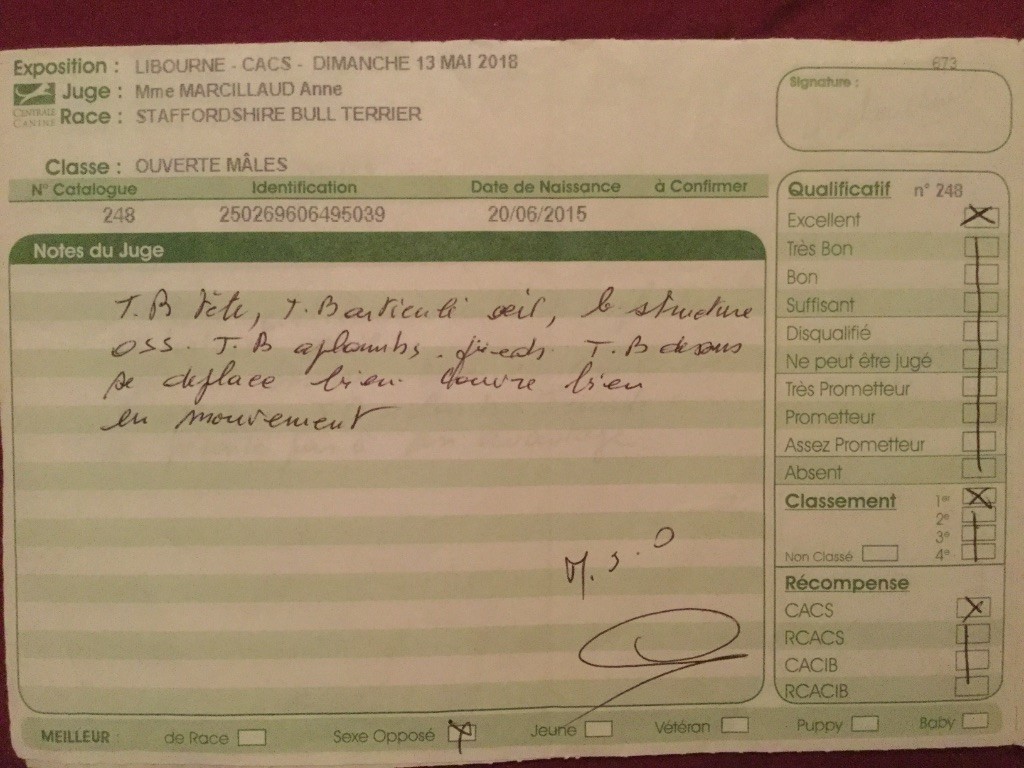 673
Exposition : LIBOURNE - CACS - DIMANCHE 13 MAI 2018
Juge : Mme MARCILLAUD Anne
CENTRALE CANINE
Race : STAFFORDSHIRE BULL TERRIER
Signature :
Classe : OUVERTE MÂLES
N° Catalogue Identification Date de Naissance à Confirmer
248 250269606495039 20/06/2015
Notes du Juge
T.B tête, T.B articulé oeil, b structure
oss. T.B aplombs. pieds T.B dessus
se deplace bien couvre bien
en mouvement
M.S.O
Qualificatif n° 248
Excellent
Très Bon
Bon
Suffisant
Disqualifié
Ne peut être jugé
Très Prometteur
Prometteur
Assez Prometteur
Absent
Classement 1er
2e
3e
Non Classé 4e
Récompense
CACS
RCACS
CACIB
RCACIB
MEILLEUR : de Race Sexe Opposé Jeune Vétéran Puppy Baby